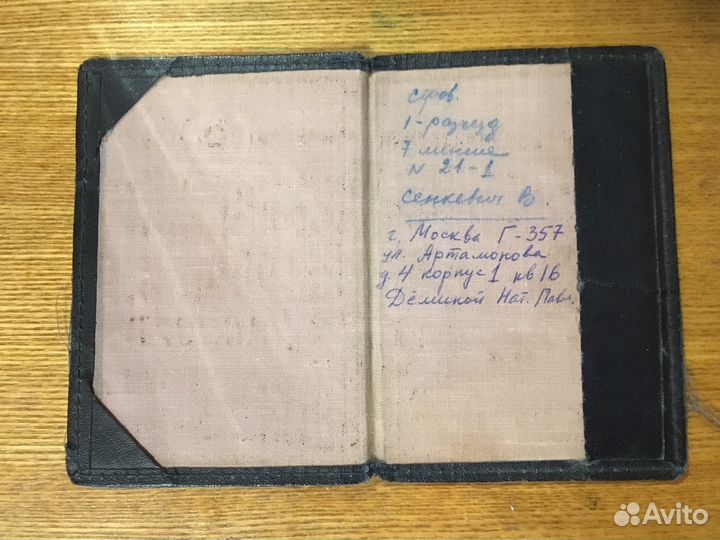 1-разъезд
7 линие
N 21-1
Сенкевич В.
г. Москва Г-357
ул. Артамонова
д. 4 корпус 1 кв 16
Дёминой Нат. Павл.
Avito